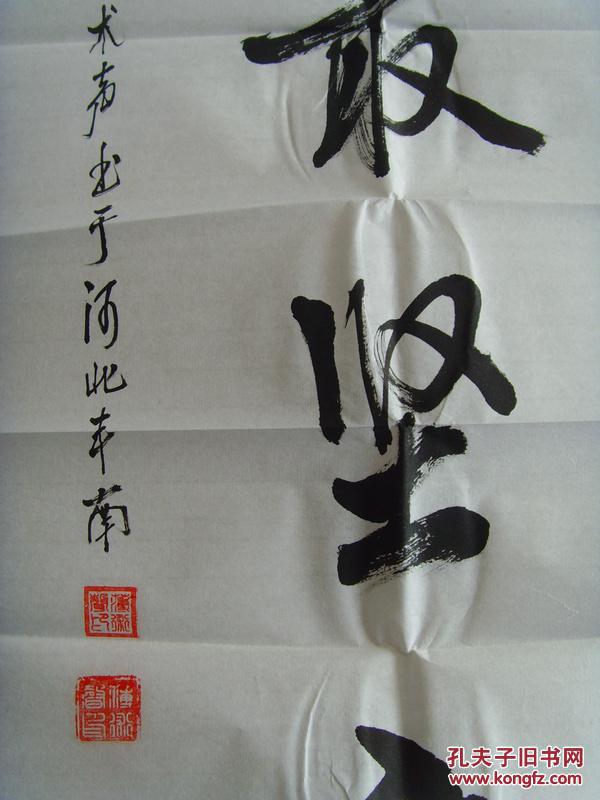 最坚
术声书于河北丰南
孔夫子旧书网
www.kongfz.com